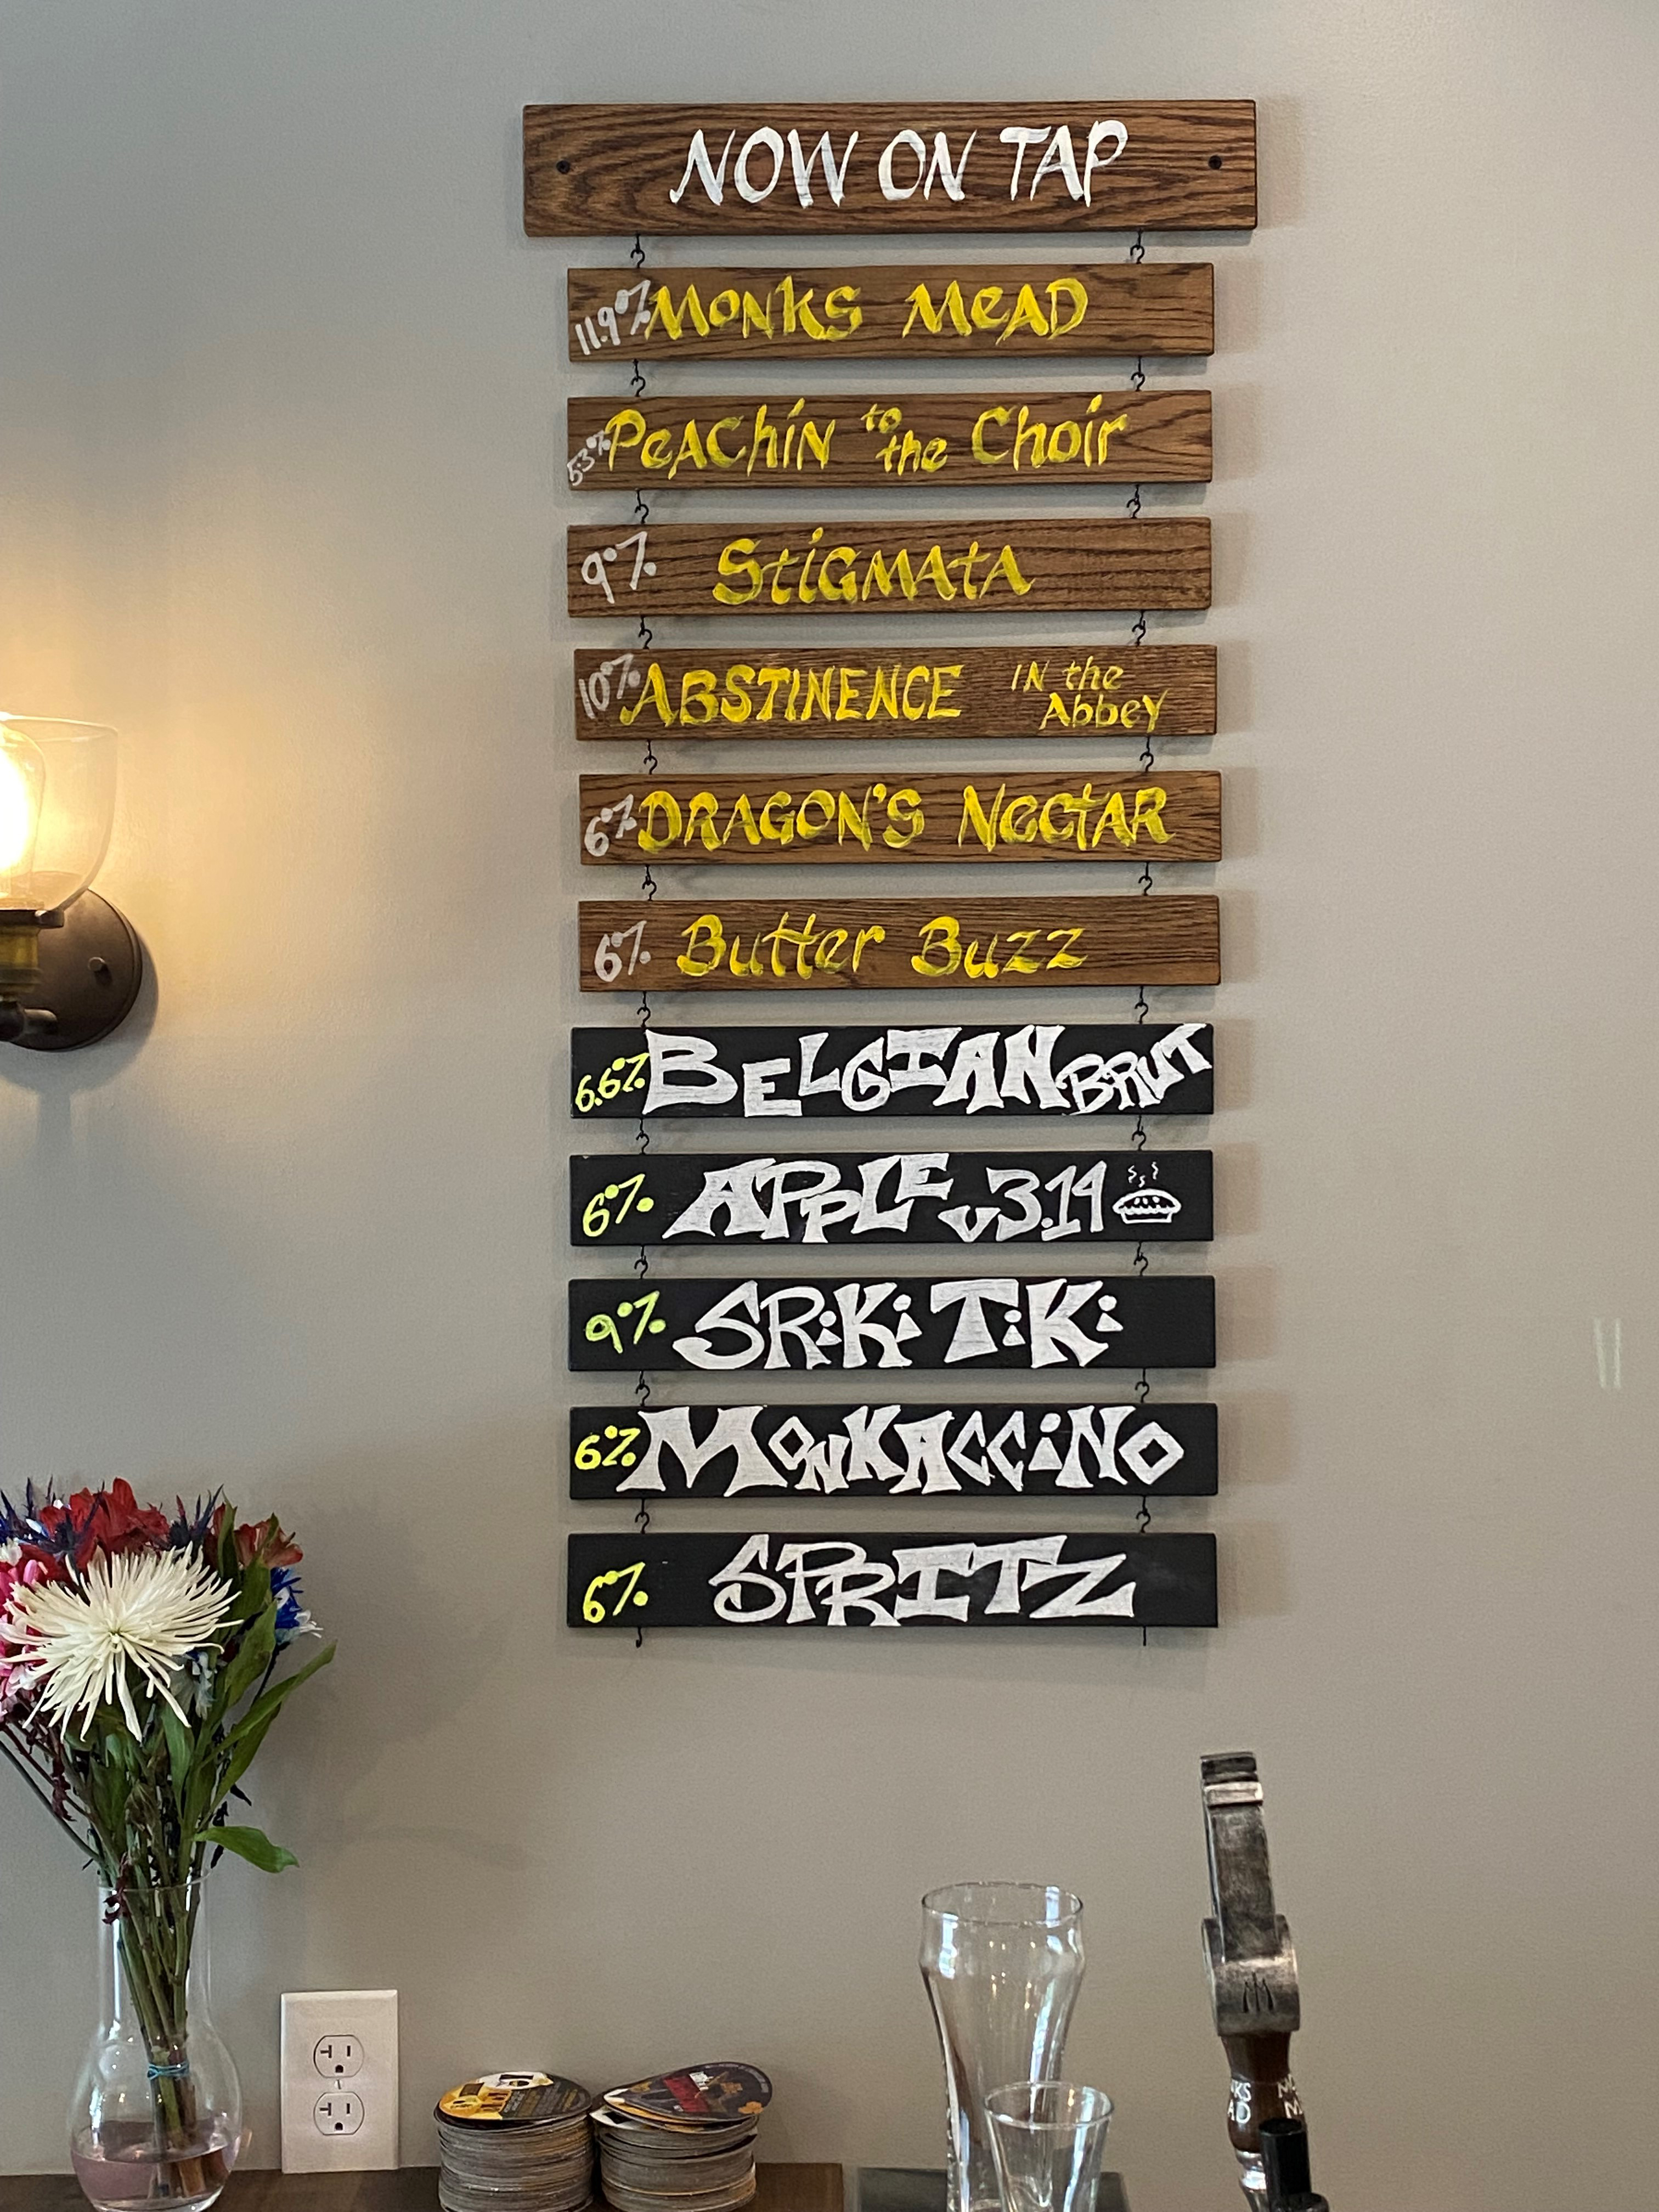 NOW ON TAP
11.9% MONKS MEAD
5.3% PeAChiN to the Choir
9% StiGMAtA
10% ABSTINENCE IN the Abbey
6% DRAGON'S NeCtAR
6% Butter Buzz
6.6% BELGIAN BRUT
6% APPLE v3.14
9% SRiKi TiKi
6% MONKACCiNO
6% SPRITZ